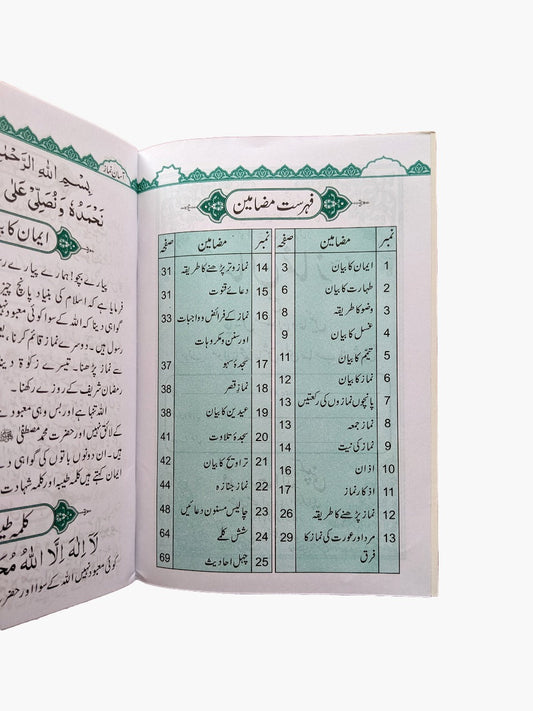 آسان نماز
فہرست مضامین
نمبر مضامین صفحہ
1 ایمان کا بیان 3
2 طہارت کا بیان 6
3 وضو کا طریقہ 8
4 غسل کا بیان 9
5 تیمم کا بیان 11
6 نماز کا بیان 12
7 پانچوں نمازوں کی رکعتیں 13
8 نماز جمعہ 13
9 نماز کی نیت 14
10 اذان 16
11 اذکار نماز 17
12 نماز پڑھنے کا طریقہ 26
13 مرد اور عورت کی نماز کا 29
فرق
نمبر مضامین صفحہ
14 نماز وتر پڑھنے کا طریقہ 31
15 دعائے قنوت 31
16 نماز کے فرائض و واجبات 33
اور سنن و مکروہات
17 سجدۂ سہو 37
18 نماز قصر 38
19 عیدین کا بیان 38
20 سجدۂ تلاوت 41
21 تراویح کا بیان 42
22 نماز جنازہ 44
23 چالیس مسنون دعائیں 48
24 شش کلمے 64
25 چہل احادیث 69
بِسْمِ اللهِ الرَّحْمٰ
نَحْمَدُهٗ وَنُصَلِّیْ عَلٰی
ایمان کا بیا
پیارے بچو! ہمارے پیارے رس
فرمایا ہے کہ اسلام کی بنیاد پانچ چیز
گواہی دینا کہ اللہ کے سوا کوئی معبود نہیں
رسول ہیں۔ دوسرے نماز قائم کرنا، یعن
سے نماز پڑھنا۔ تیسرے زکوٰۃ دینا
رمضان شریف کے روزے رکھنا۔
اللہ تنہا ہے اور بس وہی معبود ہے
کے لائق نہیں اور حضرت محمد مصطفیٰ ﷺ
ہیں۔ ان دونوں باتوں کی گواہی دی
ایمان کہتے ہیں کلمہ طیبہ اور کلمہ شہادت
کلمہ طیب
لَا اِلٰهَ اِلَّا اللهُ مُحَ
کوئی معبود نہیں اللہ کے سوا اور حضر